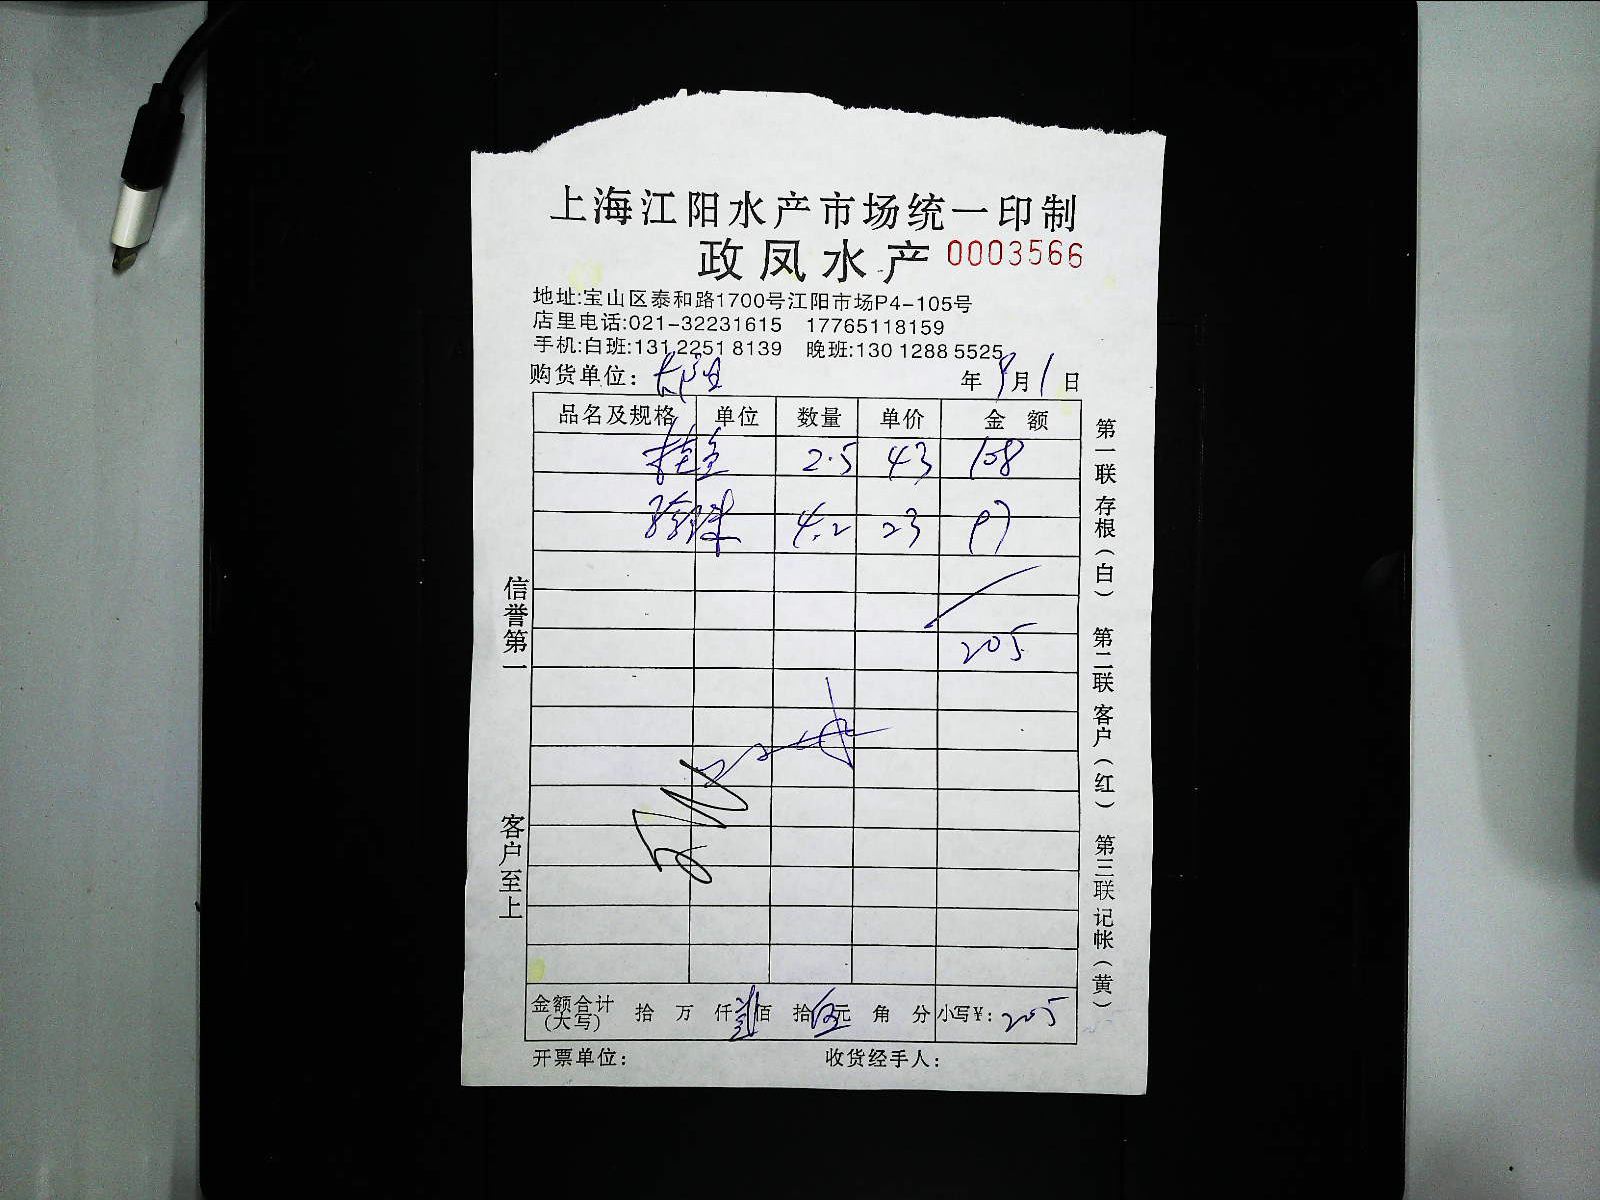 上海江阳水产市场统一印制
政凤水产 0003566
地址:宝山区泰和路1700号江阳市场P4-105号
店里电话:021-32231615 17765118159
手机:白班:131 2251 8139 晚班:130 1288 5525
购货单位: 年 9月1日
品名及规格 单位 数量 单价 金额
桂鱼 2.5 43 108
4.2 23 97
205
金额合计(大写) 拾 万 仟贰佰 拾伍元 角 分 小写¥: 205
开票单位: 收货经手人:
信誉第一 客户至上
第一联存根(白) 第二联客户(红) 第三联记帐(黄)